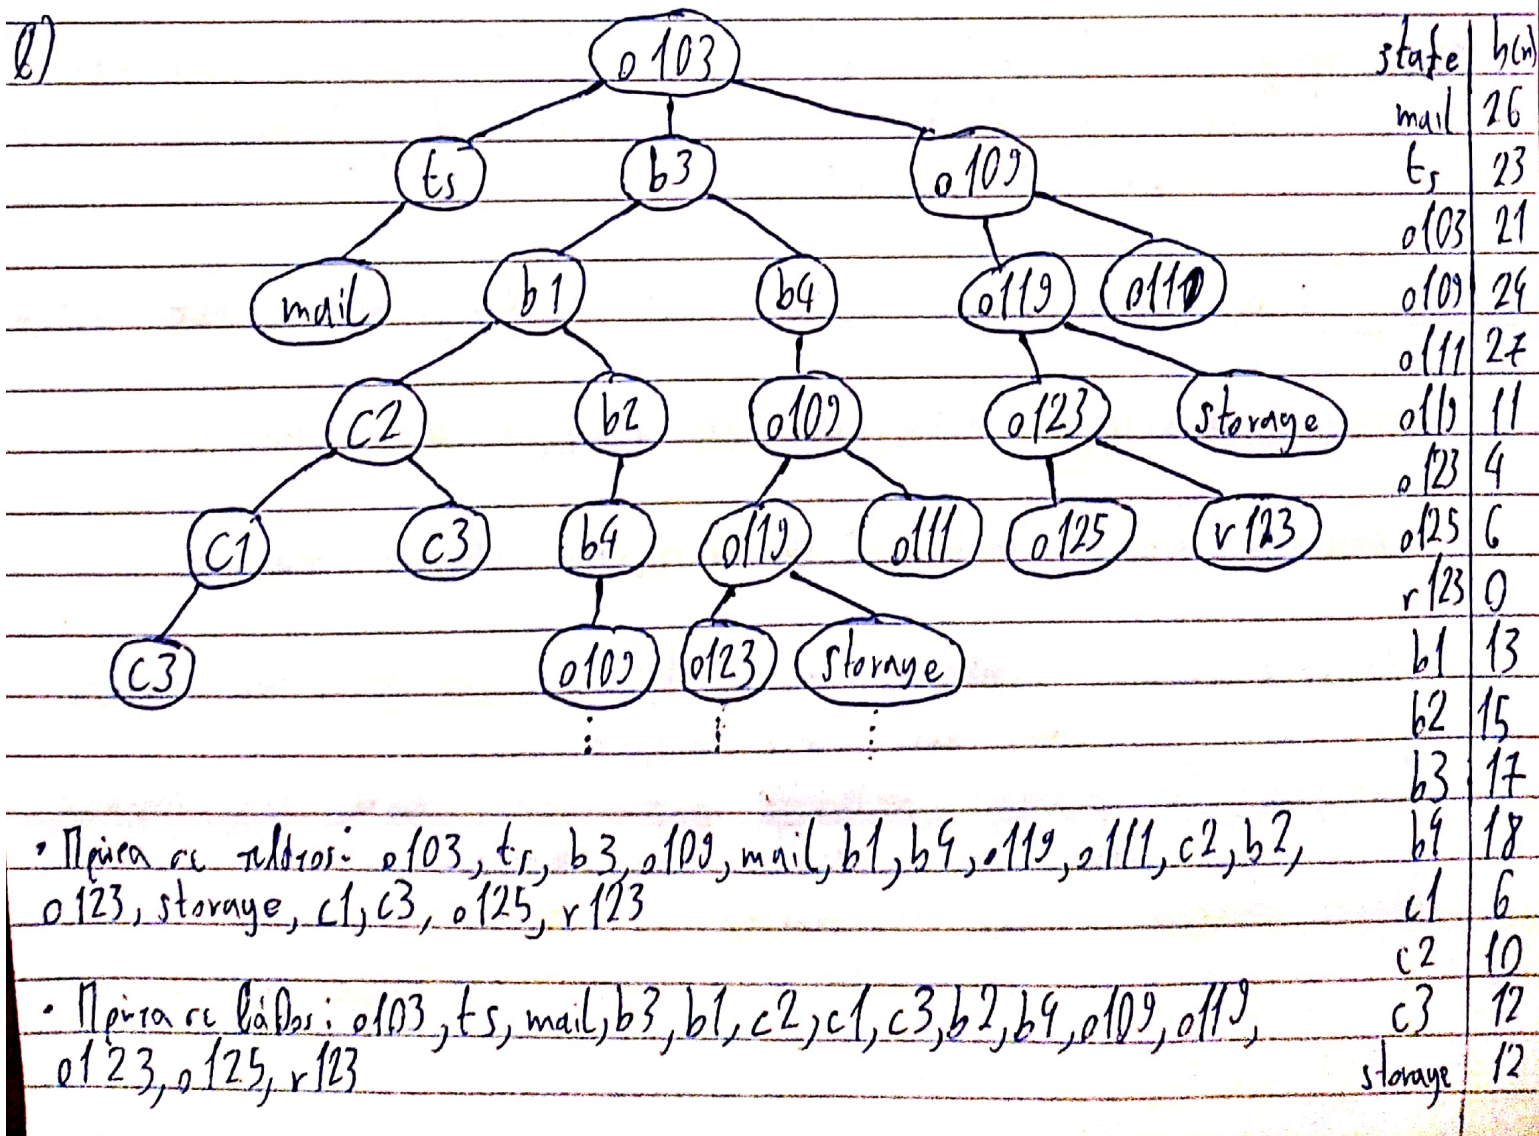 β)
o103
ts b3 o109
mail b1 b4 o119 o111
c2 b2 o109 o123 storage
c1 c3 b4 o119 o111 o125 r123
c3 o109 o123 storage
state h(n)
mail 26
ts 23
o103 21
o109 24
o111 27
o119 11
o123 4
o125 6
r123 0
b1 13
b2 15
b3 17
b4 18
c1 6
c2 10
c3 12
storage 12
• Πρώτα σε πλάτος: o103, ts, b3, o109, mail, b1, b4, o119, o111, c2, b2,
o123, storage, c1, c3, o125, r123
• Πρώτα σε βάθος: o103, ts, mail, b3, b1, c2, c1, c3, b2, b4, o109, o119,
o123, o125, r123